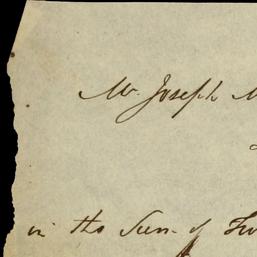 Mr. Joseph M
in the Sum of